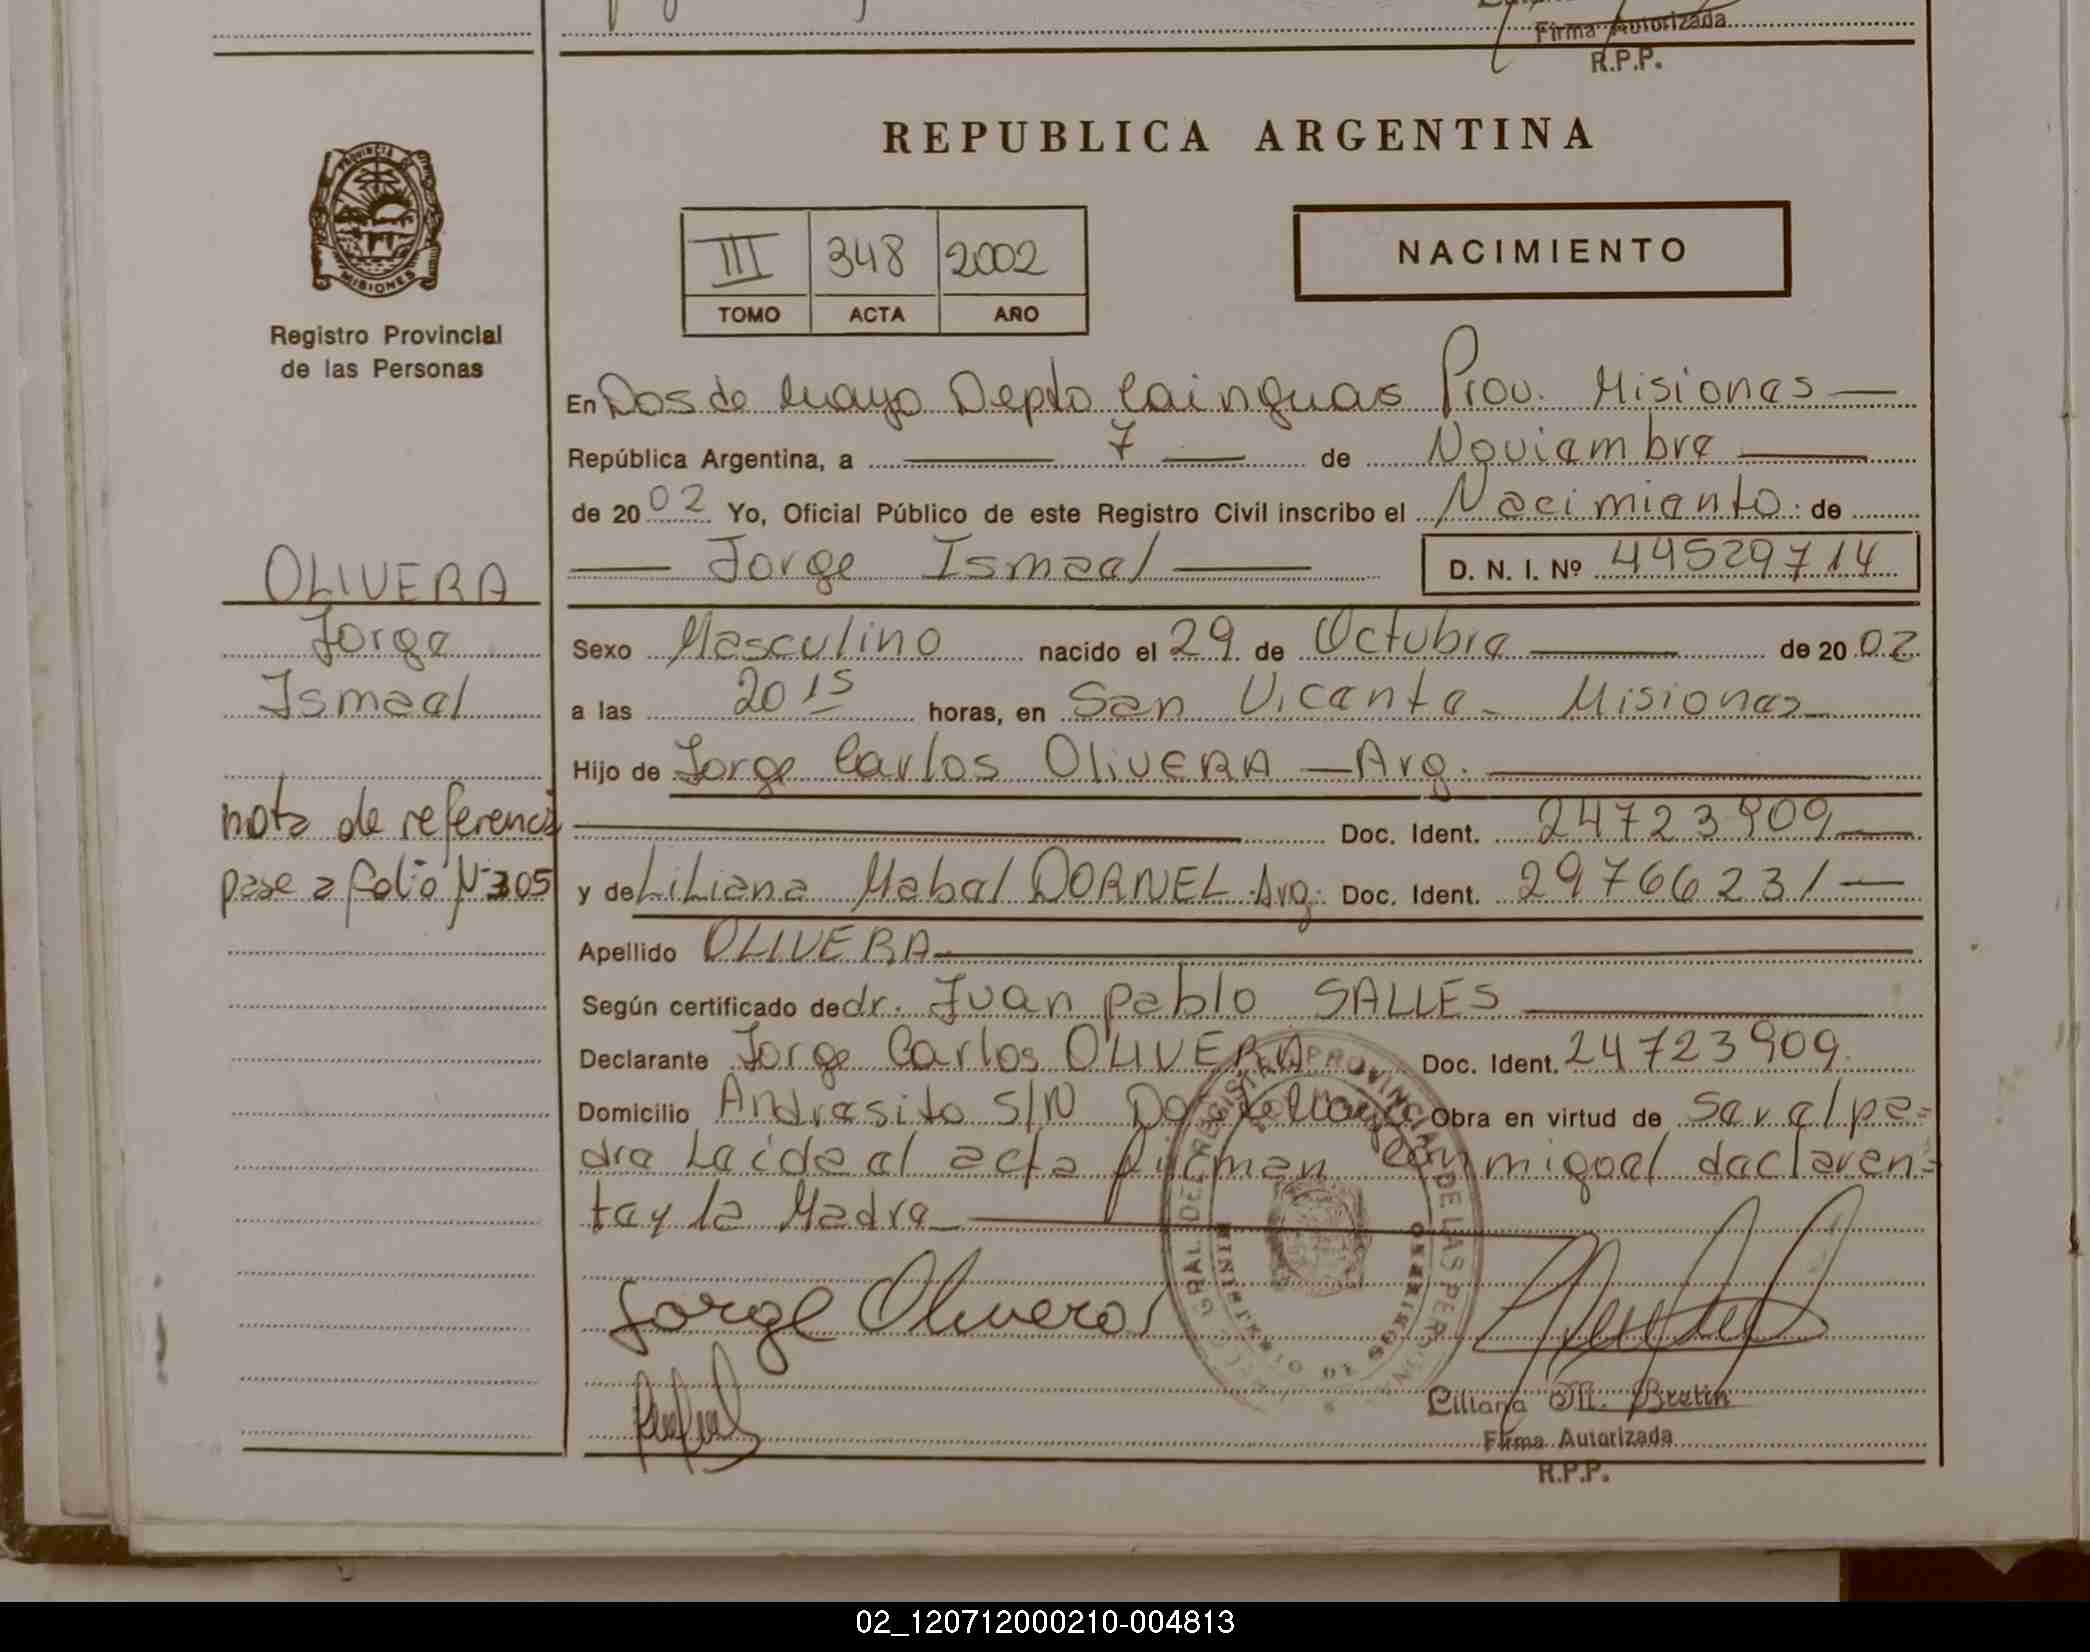 Firma Autorizada
R.P.P.
REPUBLICA ARGENTINA
PROVINCIA DE MISIONES
Registro Provincial
de las Personas
III 348 2002
TOMO ACTA AÑO
NACIMIENTO
En Dos de Mayo Depto Cainguas Prov. Misiones
República Argentina, a 7 de Noviembre
de 2002 Yo, Oficial Público de este Registro Civil inscribo el Nacimiento de
Jorge Ismael D. N. I. Nº 44529714
OLIVERA
Jorge
Ismael
nota de referenci
pase a folio Nº 305
Sexo Masculino nacido el 29 de Octubre de 2002
a las 20 15 horas, en San Vicente - Misiones
Hijo de Jorge Carlos OliVERA - Arg.
Doc. Ident. 24723909
y de Liliana Mabel DORNEL Arg. Doc. Ident. 29766231
Apellido OLIVERA
Según certificado de dr. Juan pablo SALLES
Declarante Jorge Carlos OLIVERA Doc. Ident. 24723909.
Domicilio Andresito S/N Dos de Mayo Obra en virtud de Ser el pa-
dre Leida el acta firman conmigo el declaren-
te y la Madre
Jorge Olivera
REGISTRO PROVINCIAL DE LAS PER
Liliana M. Bretin
Firma Autorizada
R.P.P.
02_120712000210-004813